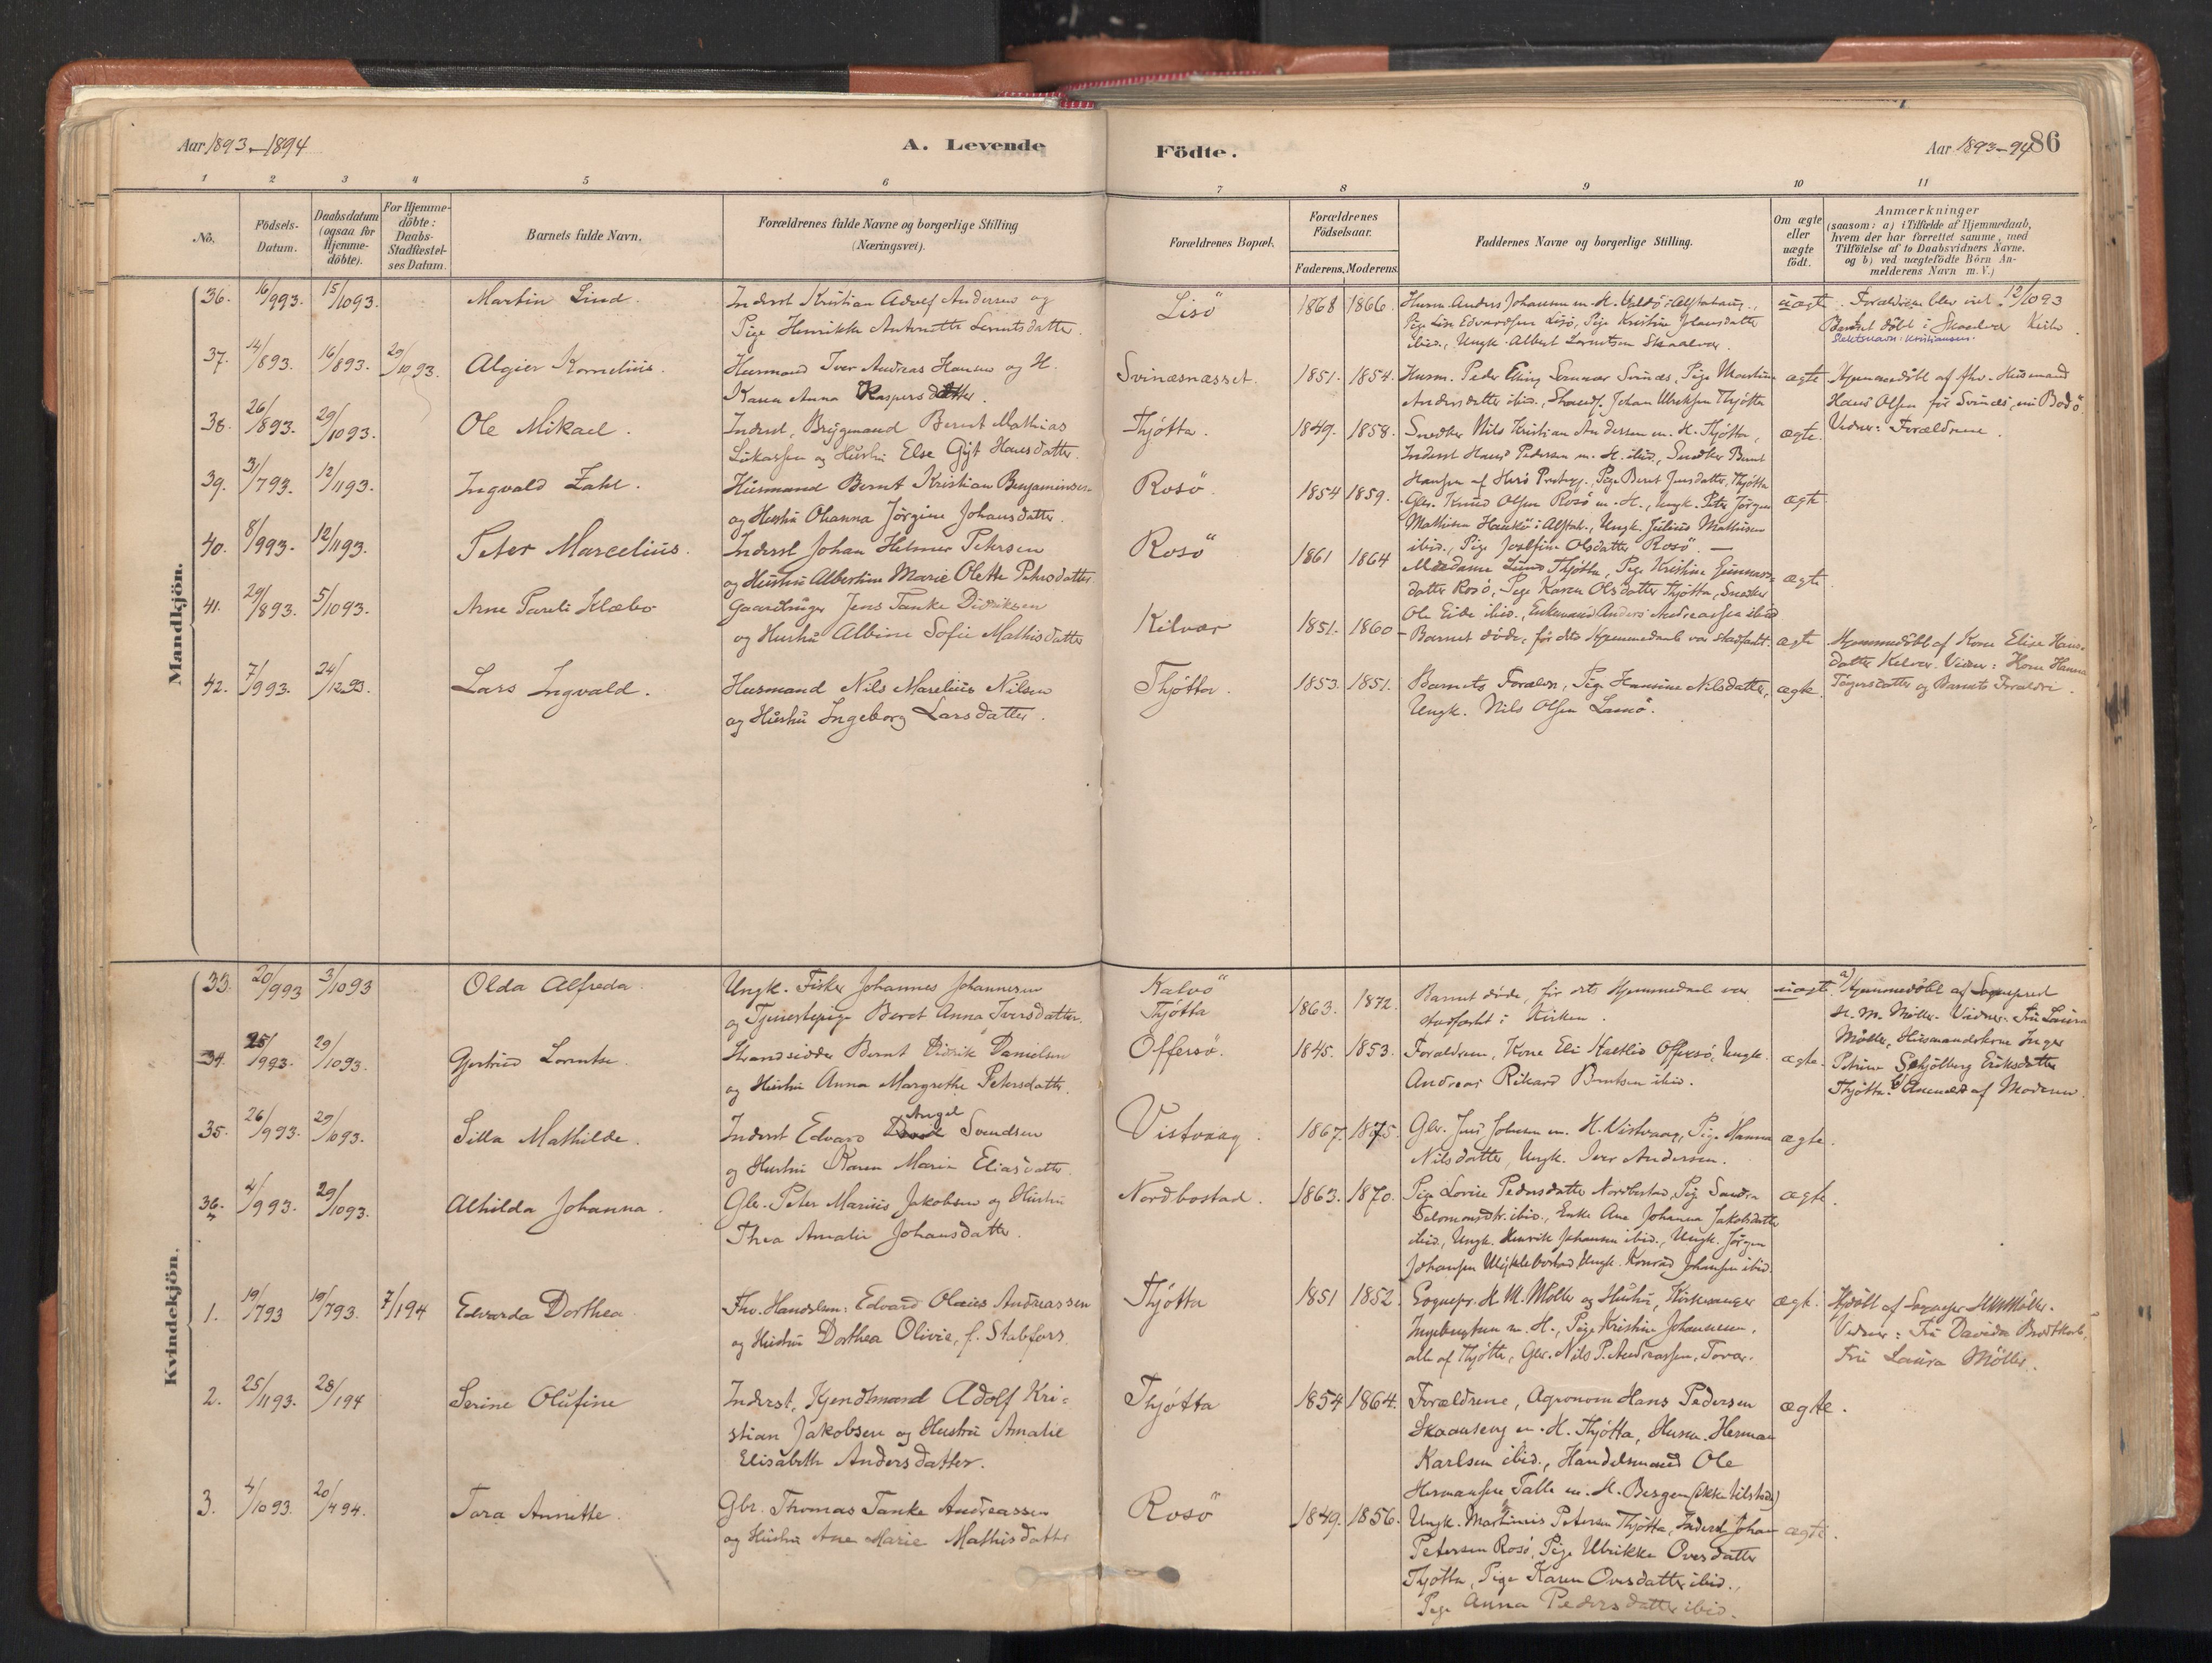 Aar 1893-1894
A. Levende
Födte.
Aar 1893-94 86
1 2 3 4 5 6 7 8 9 10 11
No.
Födsels-Datum.
Daabsdatum (ogsaa for Hjemme-döbte).
For Hjemme-döbte: Daabs-Stadfæstel-ses Datum.
Barnets fulde Navn.
Forældrenes fulde Navne og borgerlige Stilling (Næringsvei).
Forældrenes Bopæl.
Forældrenes Födselsaar.
Faderens. Moderens.
Faddernes Navne og borgerlige Stilling.
Om ægte eller uægte födt.
Anmærkninger
(saasom: a) i Tilfælde af Hjemmedaab,
hvem der har forrettet samme, med
Tilföielse af to Daabsvidners Navne.
og b) ved uægtefödte Börn An-
melderens Navn m. V.)
Mandkjön.
36. 16/9 93. 15/10 93. Martin Lind. Inderst Kristian Adolf Andersen og Lisö 1868 1866 Husm. Anders Johansen m. H. uægte. Forældrene blev viet 12/10 93
Pige Henrikke Antonette Lorntsdatter.
Pige Kristine Johansdatter
ibid., Ungk. Albert Lorntsen Skaalvær.
Barnet döbt i Skaalvær Kirke.
Slektsnavn: Kristiansen.
37. 14/8 93. 16/8 93. 29/10 93. Algier Kornelius. Husmand Iver Andreas Hansen og H. Svinæsnæsset. 1851. 1854. Husm. Peder Svinæs, Pige ægte Hjemmedöbt af fhv. Husmand
Karen Anna Kaspersdatter.
Andersdatter ibid., Johan Ulriksen Thjötta
Hans Olsen för Svinæs, nu Bodö.
38. 26/8 93. 29/10 93. Ole Mikael. Inderst, Brygmand Bernt Mathias Thjötta. 1849. 1858. Snedker Nils Kristian Andersen m. H. Thjötta, ægte. Vidner: Forældrene.
Lukassen og Hustru Else Hansdatter.
Inderst Hans Pedersen m. H. ibid., Snedker Bernt
39. 31/7 93. 12/11 93. Ingvald Zahl. Husmand Bernt Kristian Benjaminsen Rosö. 1854 1859. Hansen af Herö Prestegj., Pige Berit Jensdatter, Thjötta ægte
og Hustru Ohanna Jörgine Johansdatter.
Gbr. Knud Olsen Rosö m. H., Ungk. Peter Jörgen
Mathisen i Alstah., Ungk. Julius Mathisen
40. 8/9 93. 12/11 93. Peter Marcelius. Inderst Johan Helmer Petersen Rosö 1861 1864 ibid., Pige Josefine Olsdatter Rosö. —
og Hustru Albertine Marie Olette Petersdatter
Madame Lund Thjötta, Pige Kristine ægte.
datter Rosö, Pige Karen Olsdatter Thjötta, Snedker
41. 29/8 93. 5/10 93. Arne Pareli Klæbo Gaardbruger Jens Tanke Didriksen Kilvær 1851. 1860 Ole Eide ibid., Enkemand Anders Andreassen ibid
og Hustru Albine Sofie Mathisdatter
Barnet döde, för dets Hjemmedaab var stadfæstet. ægte Hjemmedöbt af Kone Elise Hans-
datter Kilvær. Vidner: Kone Hanna
42. 7/9 93. 24/12 93. Lars Ingvald. Husmand Nils Marelius Nilsen Thjötta. 1853. 1851. Barnets Forældre, Pige Hansine Nilsdatter, ægte. og Barnets Forældre.
og Hustru Ingeborg Larsdatter.
Ungk. Nils Olsen
Kvindekjön.
33. 20/9 93 3/10 93 Olda Alfreda. Ungk. Fisker Johannes Johannesen Kalvö 1863. 1872. Barnet döde, för dets Hjemmedaab var uægte. a) Hjemmedöbt af Sognepræst
og Tjenestepige Beret Anna Iversdatter. Thjötta
stadfæstet i Kirken.
H. M. Möller. Vidner: Fru Laura
34. 25/9 93. 29/10 93. Gjertrud Lorntse. Strandsidder Bernt Didrik Danielsen Offersö. 1845. 1853. Forældrene, Kone Eli Offersö, Ungk. ægte. Möller, Husmandskone Inger
og Hustru Anna Margrethe Petersdatter.
Andreas Rikard Berntsen ibid.
Petrine Schjölberg Eriksdatter
Thjötta. b) Anmeldt af Moderen.
35. 26/9 93. 29/10 93. Silla Mathilde. Inderst Edvard Angel Svendsen Vistvaag. 1867. 1875. Gbr. Jens Johnsen m. H. Vistvaag, Pige Hanna ægte.
og Hustru Karen Marie Eliasdatter.
Nilsdatter, Ungk. Iver Andersen.
36. 4/9 93. 29/10 93. Alhilda Johanna. Gbr. Peter Marius Jakobsen og Hustru Nordbostad. 1863. 1870. Pige Lovise Pedersdatter Nordbostad, Pige Sandra ægte.
Thea Amalie Johansdatter.
Salomonsdtr. ibid., Enke Ane Johanna Jakobsdatter
ibid., Ungk. Henrik Johansen ibid., Ungk. Jörgen
Johansen Ungk. Konrad Johansen ibid.
1. 19/7 93 19/7 93. 7/1 94 Edvarda Dorthea. Fhv. Handelsm: Edvard Olaus Andreassen Thjötta 1851 1852. Sognepr. H. M. Möller og Hustru, Kirkesanger ægte. Hjdöbt af Sognepr H M Möller.
og Hustru Dorthea Olivie, f. Stabfors.
Ingebrigtsen m. H., Pige Kristine Johannesen,
Vidner: Fru Davida Brodtkorb,
alle af Thjötta, Gbr. Nils P. Andreassen, Forvær.
Fru Laura Möller.
2. 25/11 93. 28/1 94 Serine Olufine Inderst, Kjendtmand Adolf Kri- Thjötta 1854 1864. Forældrene, Agronom Hans Pedersen ægte.
stian Jakobsen og Hustru Amalie
m. H. Thjötta, Husm. Herman
Elisabeth Andersdatter.
Karlsen ibid., Handelsmand Ole
Hermansen Falle m. H. Bergen (ikke tilstede)
3. 4/10 93. 20/4 94. Tora Annette. Gbr. Thomas Tanke Andreassen Rosö 1849. 1856. Ungk. Martinus Petersen Thjötta, Inderst Johan ægte.
og Hustru Ane Marie Mathisdatter
Petersen Rosö, Pige Ulrikke Oversdatter
Thjötta, Pige Karen Oversdatter ibid.,
Pige Anna Pedersdatter ibid.